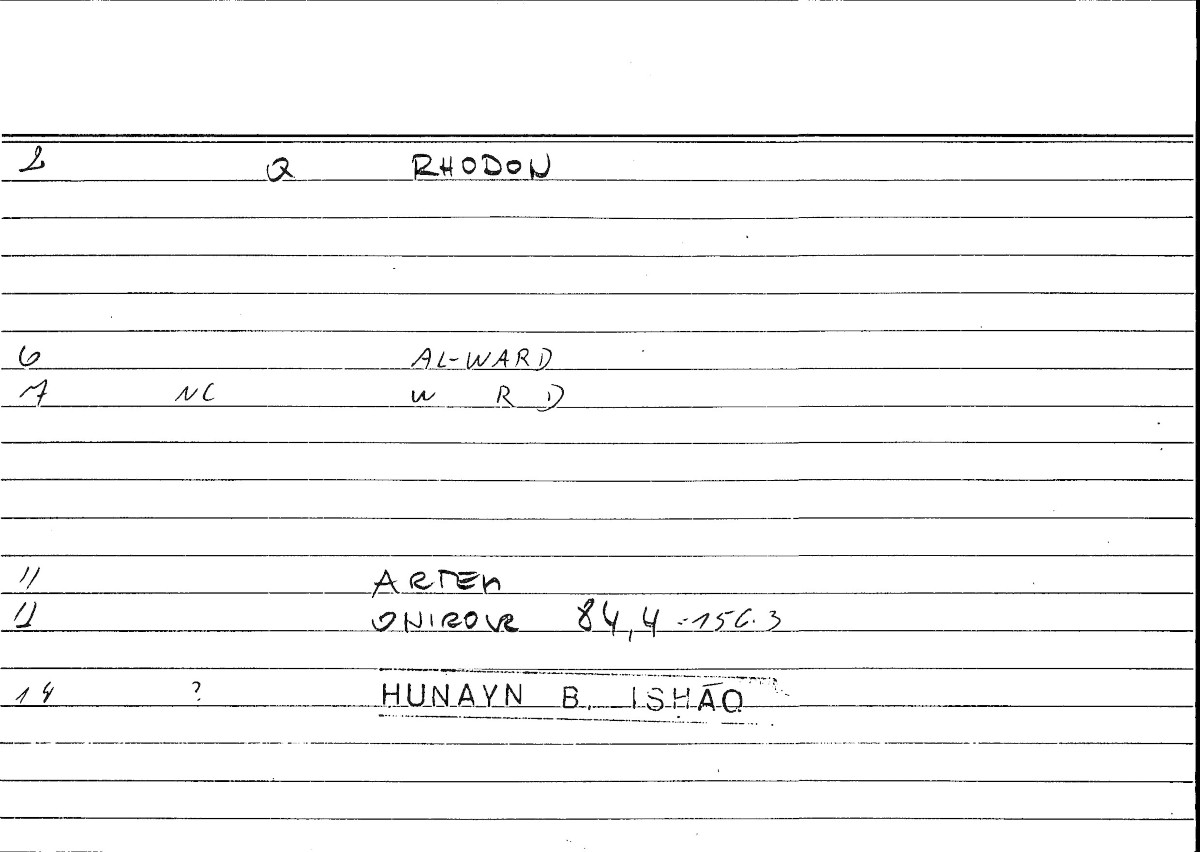 2 Q RHODON
6 AL-WARD
7 NC W R D
11 ARTEM
12 ONIROCR 84,4 = 156.3
14 ? HUNAYN B. ISḤĀQ